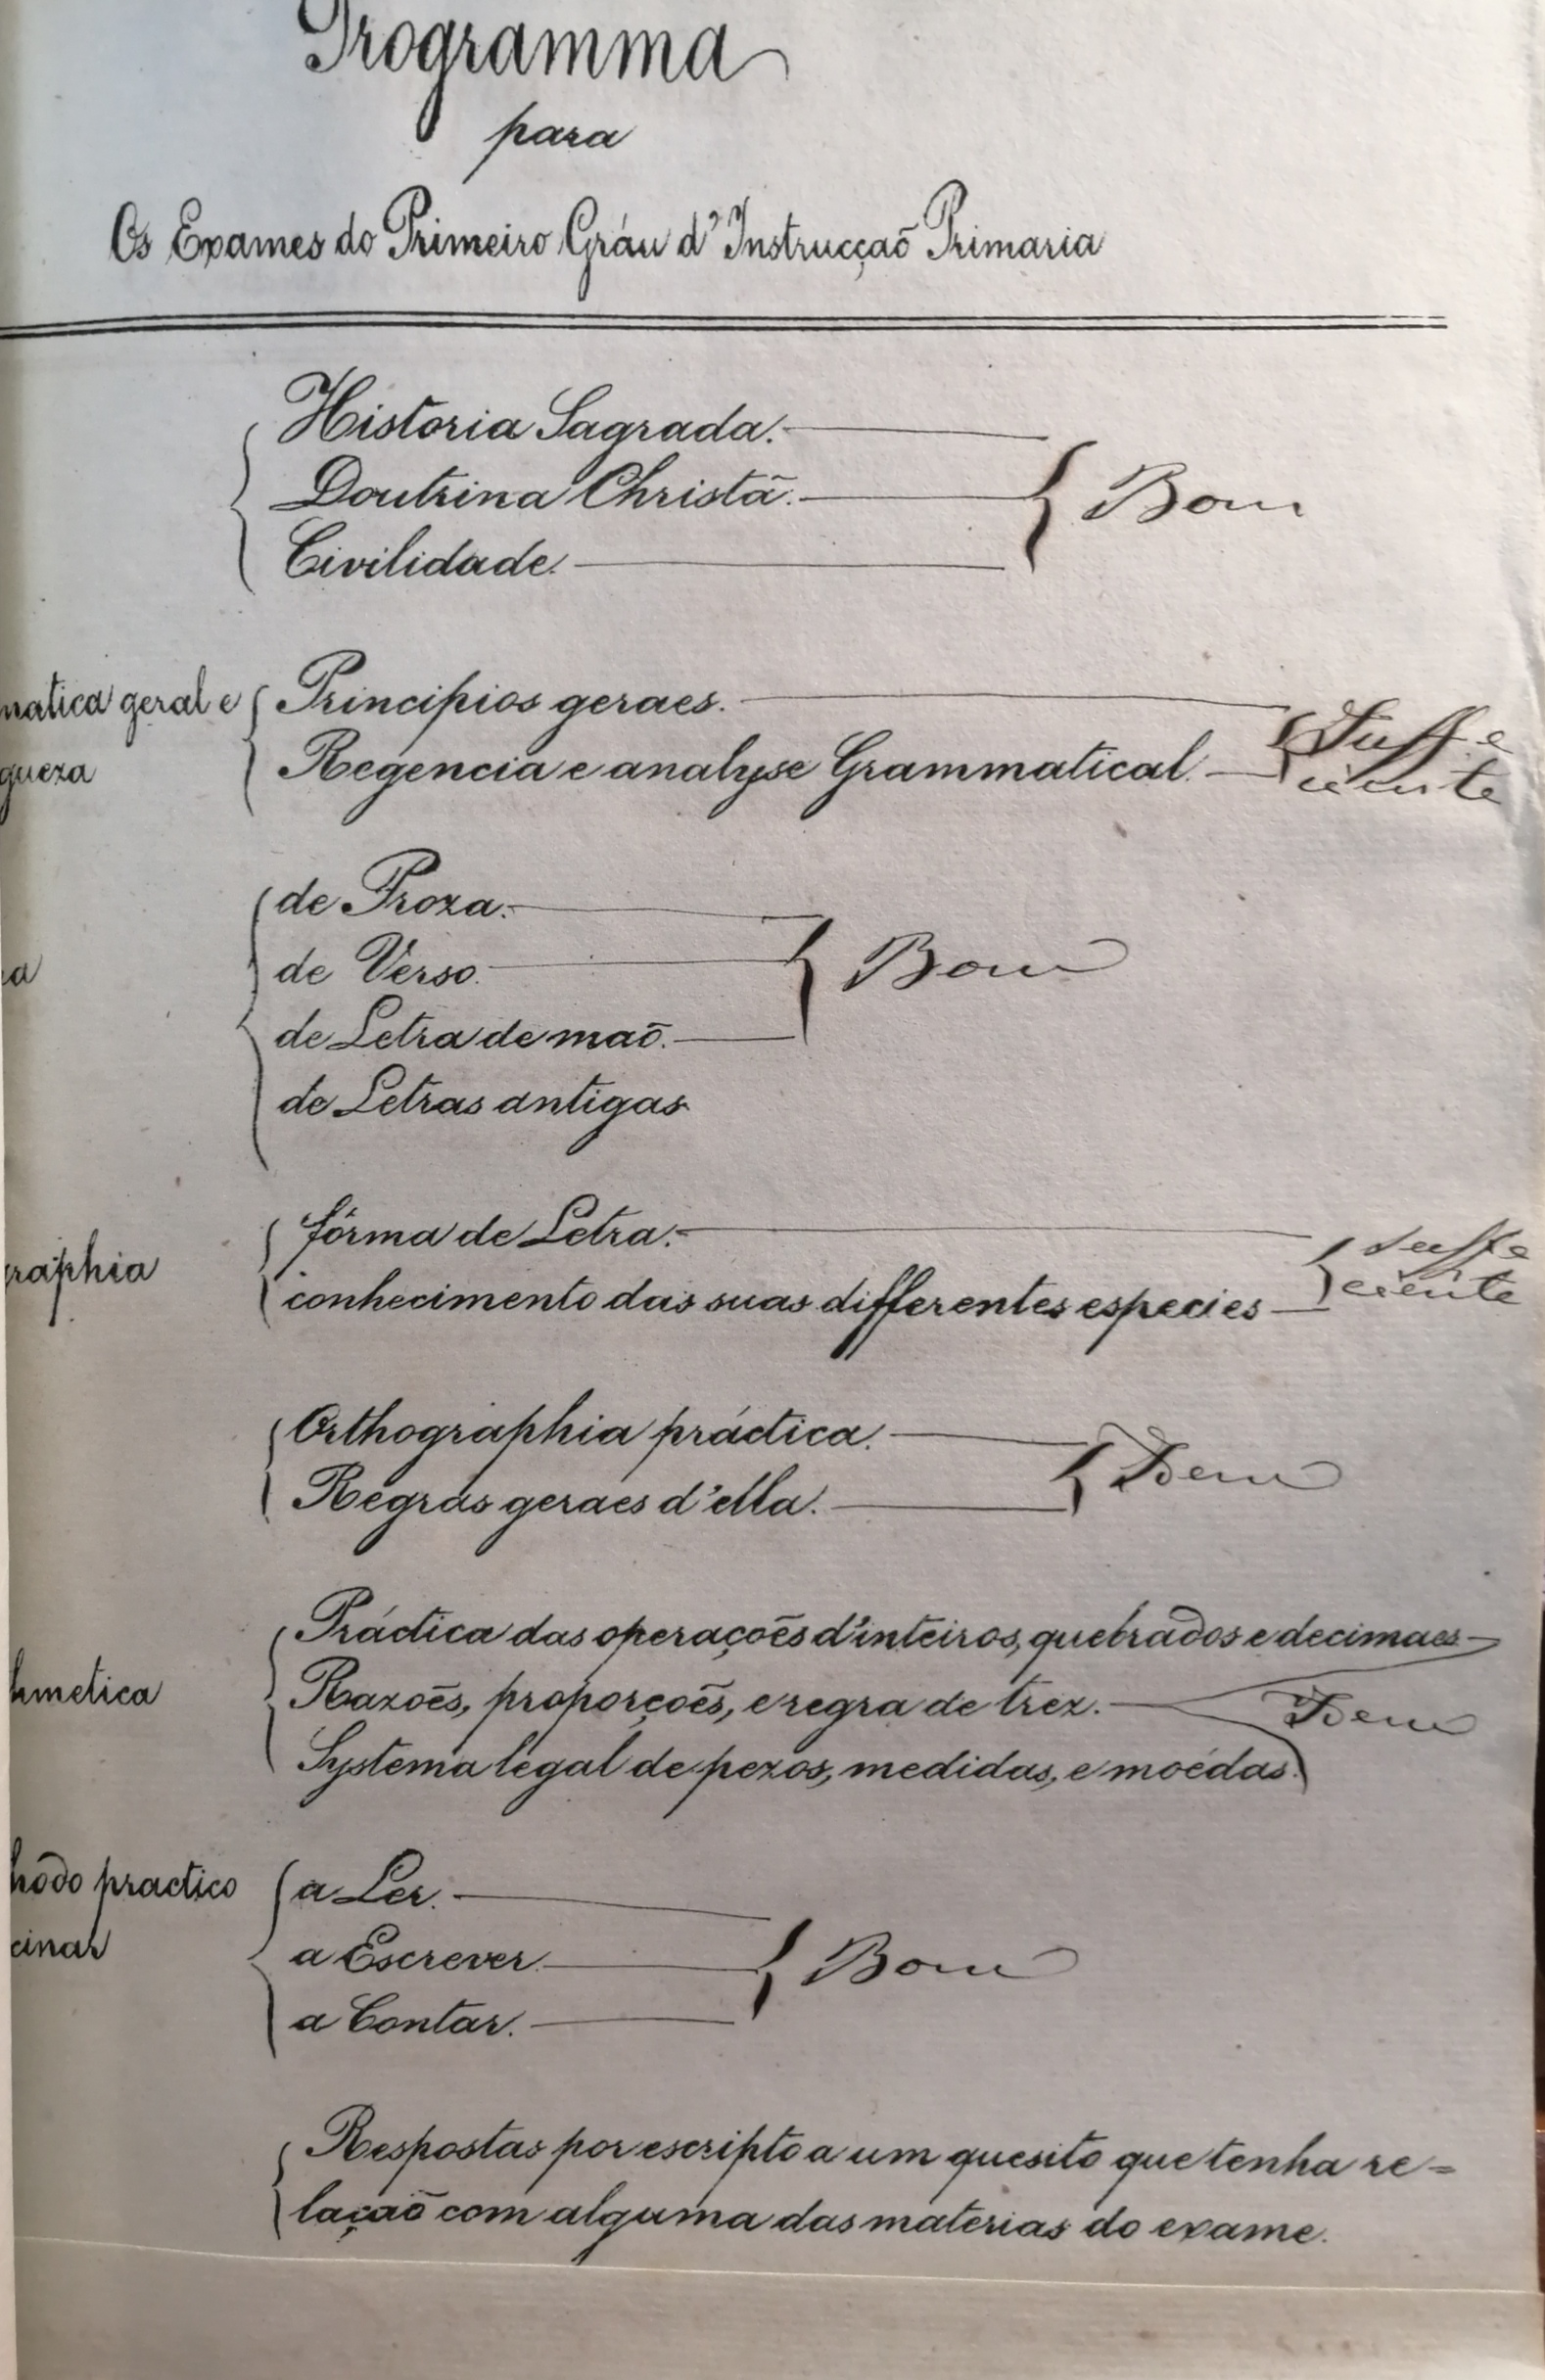 Programma
para
Os Exames do Primeiro Gráu d'Instrucçaõ Primaria
Historia Sagrada.
Doutrina Christã.
Civilidade.
Bom
matica geral e
gueza
Principios geraes.
Regencia e analyse Grammatical.
Suffi
ciente
de Proza.
de Verso.
de Letra de maõ.
de Letras antigas
Bom
a
graphia
fórma de Letra.
conhecimento das suas differentes especies
Suffi
ciente
Orthographia práctica.
Regras geraes d'ella.
Bem
hmetica
Práctica das operaçoẽs d'inteiros, quebrados e decimaes
Razoẽs, proporçoẽs, e regra de trez.
Systema legal de pezos, medidas, e moédas.
Bem
hodo practico
cinar
a Ler.
a Escrever.
a Contar.
Bom
Respostas por escripto a um quesito que tenha re=
laçaõ com alguma das materias do exame.